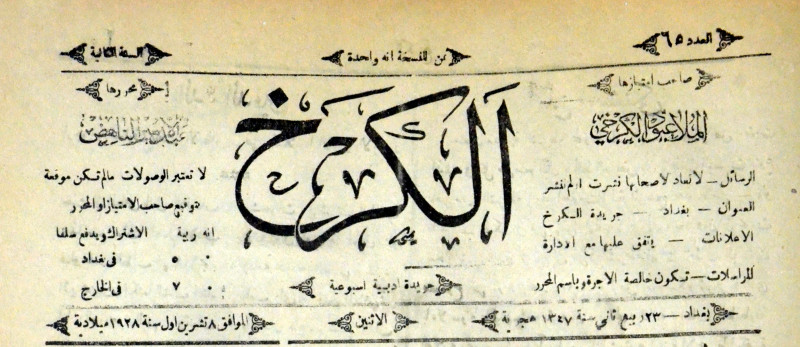 العدد ٦٥
ثمن النسخة انه واحدة
السنة الثانية
صاحب امتيازها
الملا عبود الكرخي
الكرخ
جريدة ادبية اسبوعية
محررها
عبد الامير الناهض
الرسائل — لا تعاد لاصحابها نشرت او لم تنشر
العنوان — بغداد — جريدة الكرخ
الاعلانات — يتفق عليها مع الادارة
المراسلات — تكون خالصة الاجرة وباسم المحرر
لا تعتبر الوصولات مالم تكن موقعة
بتوقيع صاحب الامتياز او المحرر
انه ربية الاشتراك ويدفع سلفا
٠ ٥ في بغداد
٠ ٧ في الخارج
بغداد — ٢٣ ربيع ثاني سنة ١٣٤٧ هجرية
الاثنين
الموافق ٨ تشرين اول سنة ١٩٢٨ ميلادية